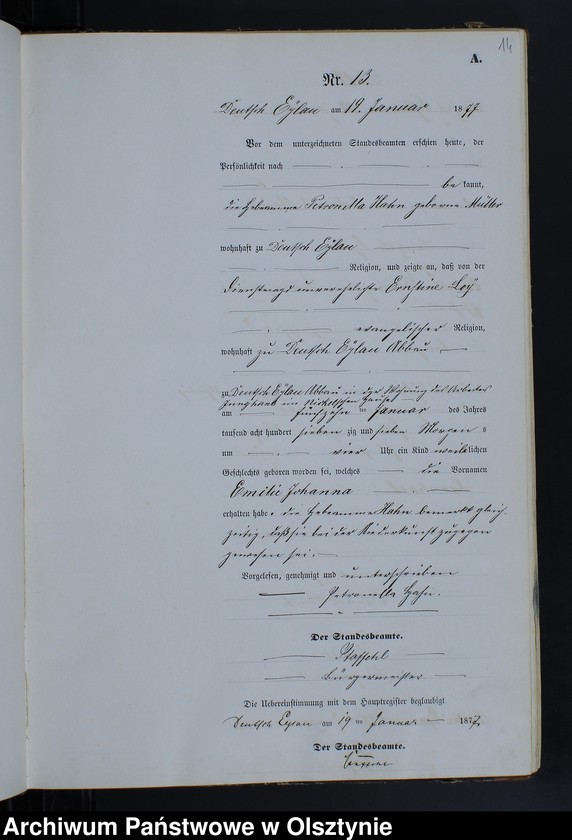 14
A.
Nr. 13.
Deutsch Eylau am 19. Januar 1877.
Vor dem unterzeichneten Standesbeamten erschien heute, der
Persönlichkeit nach
be kannt,
die Hebeamme Petronella Hahn geborne Müller
wohnhaft zu Deutsch Eylau
Religion, und zeigte an, daß von der
Dienstmagd unverehelichte Ernstine Loy
evangelischer Religion,
wohnhaft zu Deutsch Eylau Abbau
zu Deutsch Eylau Abbau in der Wohnung des Arbeiter
im Hause
am fünfzehn ten Januar des Jahres
tausend acht hundert sieben zig und sieben Morgens
um vier Uhr ein Kind weiblichen
Geschlechts geboren worden sei, welches die Vornamen
Emilie Johanna
erhalten habe. die Hebeamme Hahn bemerkt gleich
zeitig, daß sie bei der Niederkunft zugegen
gewesen sei.
Vorgelesen, genehmigt und unterschrieben
Petronella Hahn.
Der Standesbeamte.
Bürgermeister
Die Uebereinstimmung mit dem Hauptregister beglaubigt
Deutsch Eylau am 19 ten Januar 1877.
Der Standesbeamte.
Archiwum Państwowe w Olsztynie